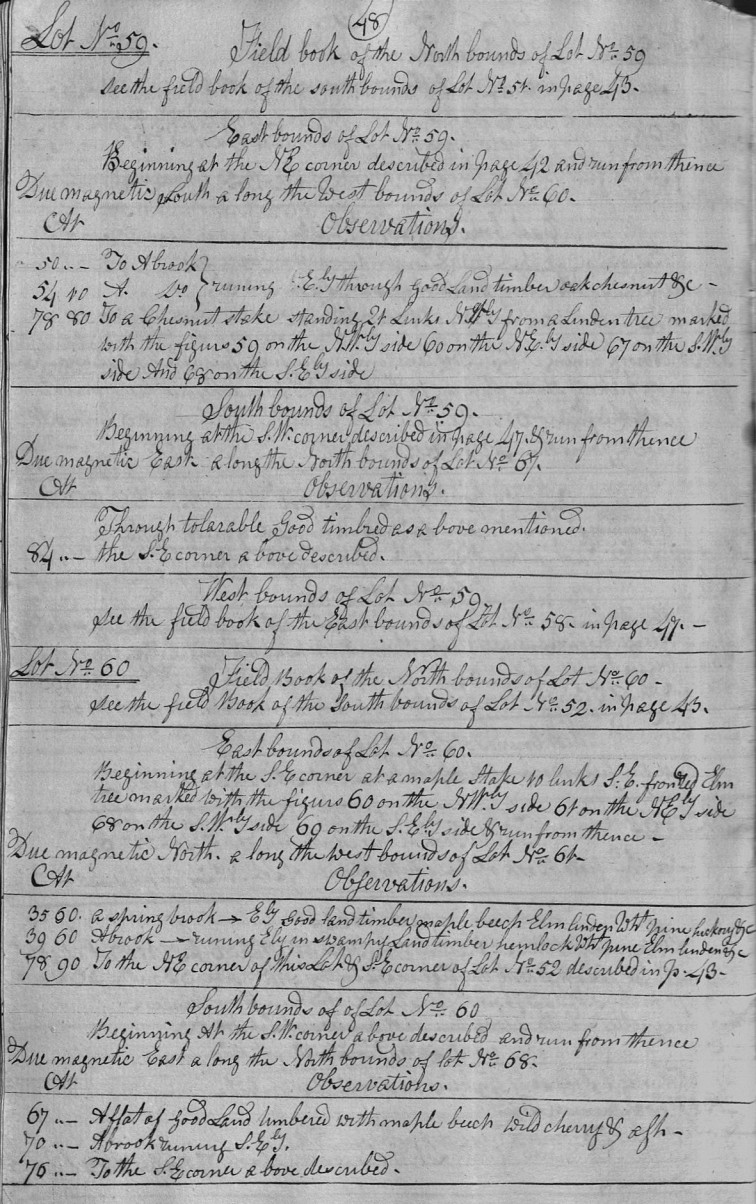 48
Lot No. 59. Field book of the North bounds of Lot No. 59
see the field book of the south bounds of Lot No. 51. in page 43.
East bounds of Lot No. 59.
Beginning at the NE corner described in page 42 and run from thence
Due magnetic South a long the West bounds of Lot No. 60.
Cht Observations.
50 .. — To A brook
54 10 A Do } runing S.Ely through good Land timber oak chesnut &c —
78 80 To a Chesnut stake standing 21 Links NWly from a Linden tree marked
with the figurs 59 on the N.Wly side 60 on the N.Ely side 67 on the S.Wly
side And 68 on the S.Ely side
South bounds of Lot No. 59.
Beginning at the S.W. corner described in page 47. & run from thence
Due magnetic East a long the North bounds of Lot No. 67.
Cht Observations.
Through tolarable Good timbred as a bove mentioned.
84 .. — the S.E corner a bove described.
West bounds of Lot No. 59
see the field book of the East bounds of Lot No. 58. in page 47. —
Lot No. 60 Field Book of the North bounds of Lot No. 60 —
see the field Book of the South bounds of Lot No. 52. in page 43.
East bounds of Lot No. 60.
Beginning at the S.E corner at a maple Stake 10 links S.E. from Elm
tree marked with the figurs 60 on the N.Wly side 61 on the N.Ely side
68 on the S.Wly side 69 on the S.Ely side & run from thence —
Due magnetic North. a long the west bounds of Lot No. 61 —
Cht Observations.
35 60. a spring brook → Ely good land timber maple beech Elm linden Wht pine hickory &c
39 60 A brook → runing Ely in swampy Land timber hemlock Wht pine Elm linden &c
78 90 To the NE corner of this Lot & S.E corner of Lot No. 52 described in p. 43 —
South bounds of of Lot No. 60
Beginning At the S.W. corner a bove described and run from thence
Due magnetic East a long the North bounds of lot No. 68.
Cht Observations.
67 .. — A flat of good Land timbered with maple beech wild cherry & ash —
70 .. — A brook runing S.Ely.
76 .. — To the S.E corner a bove described.